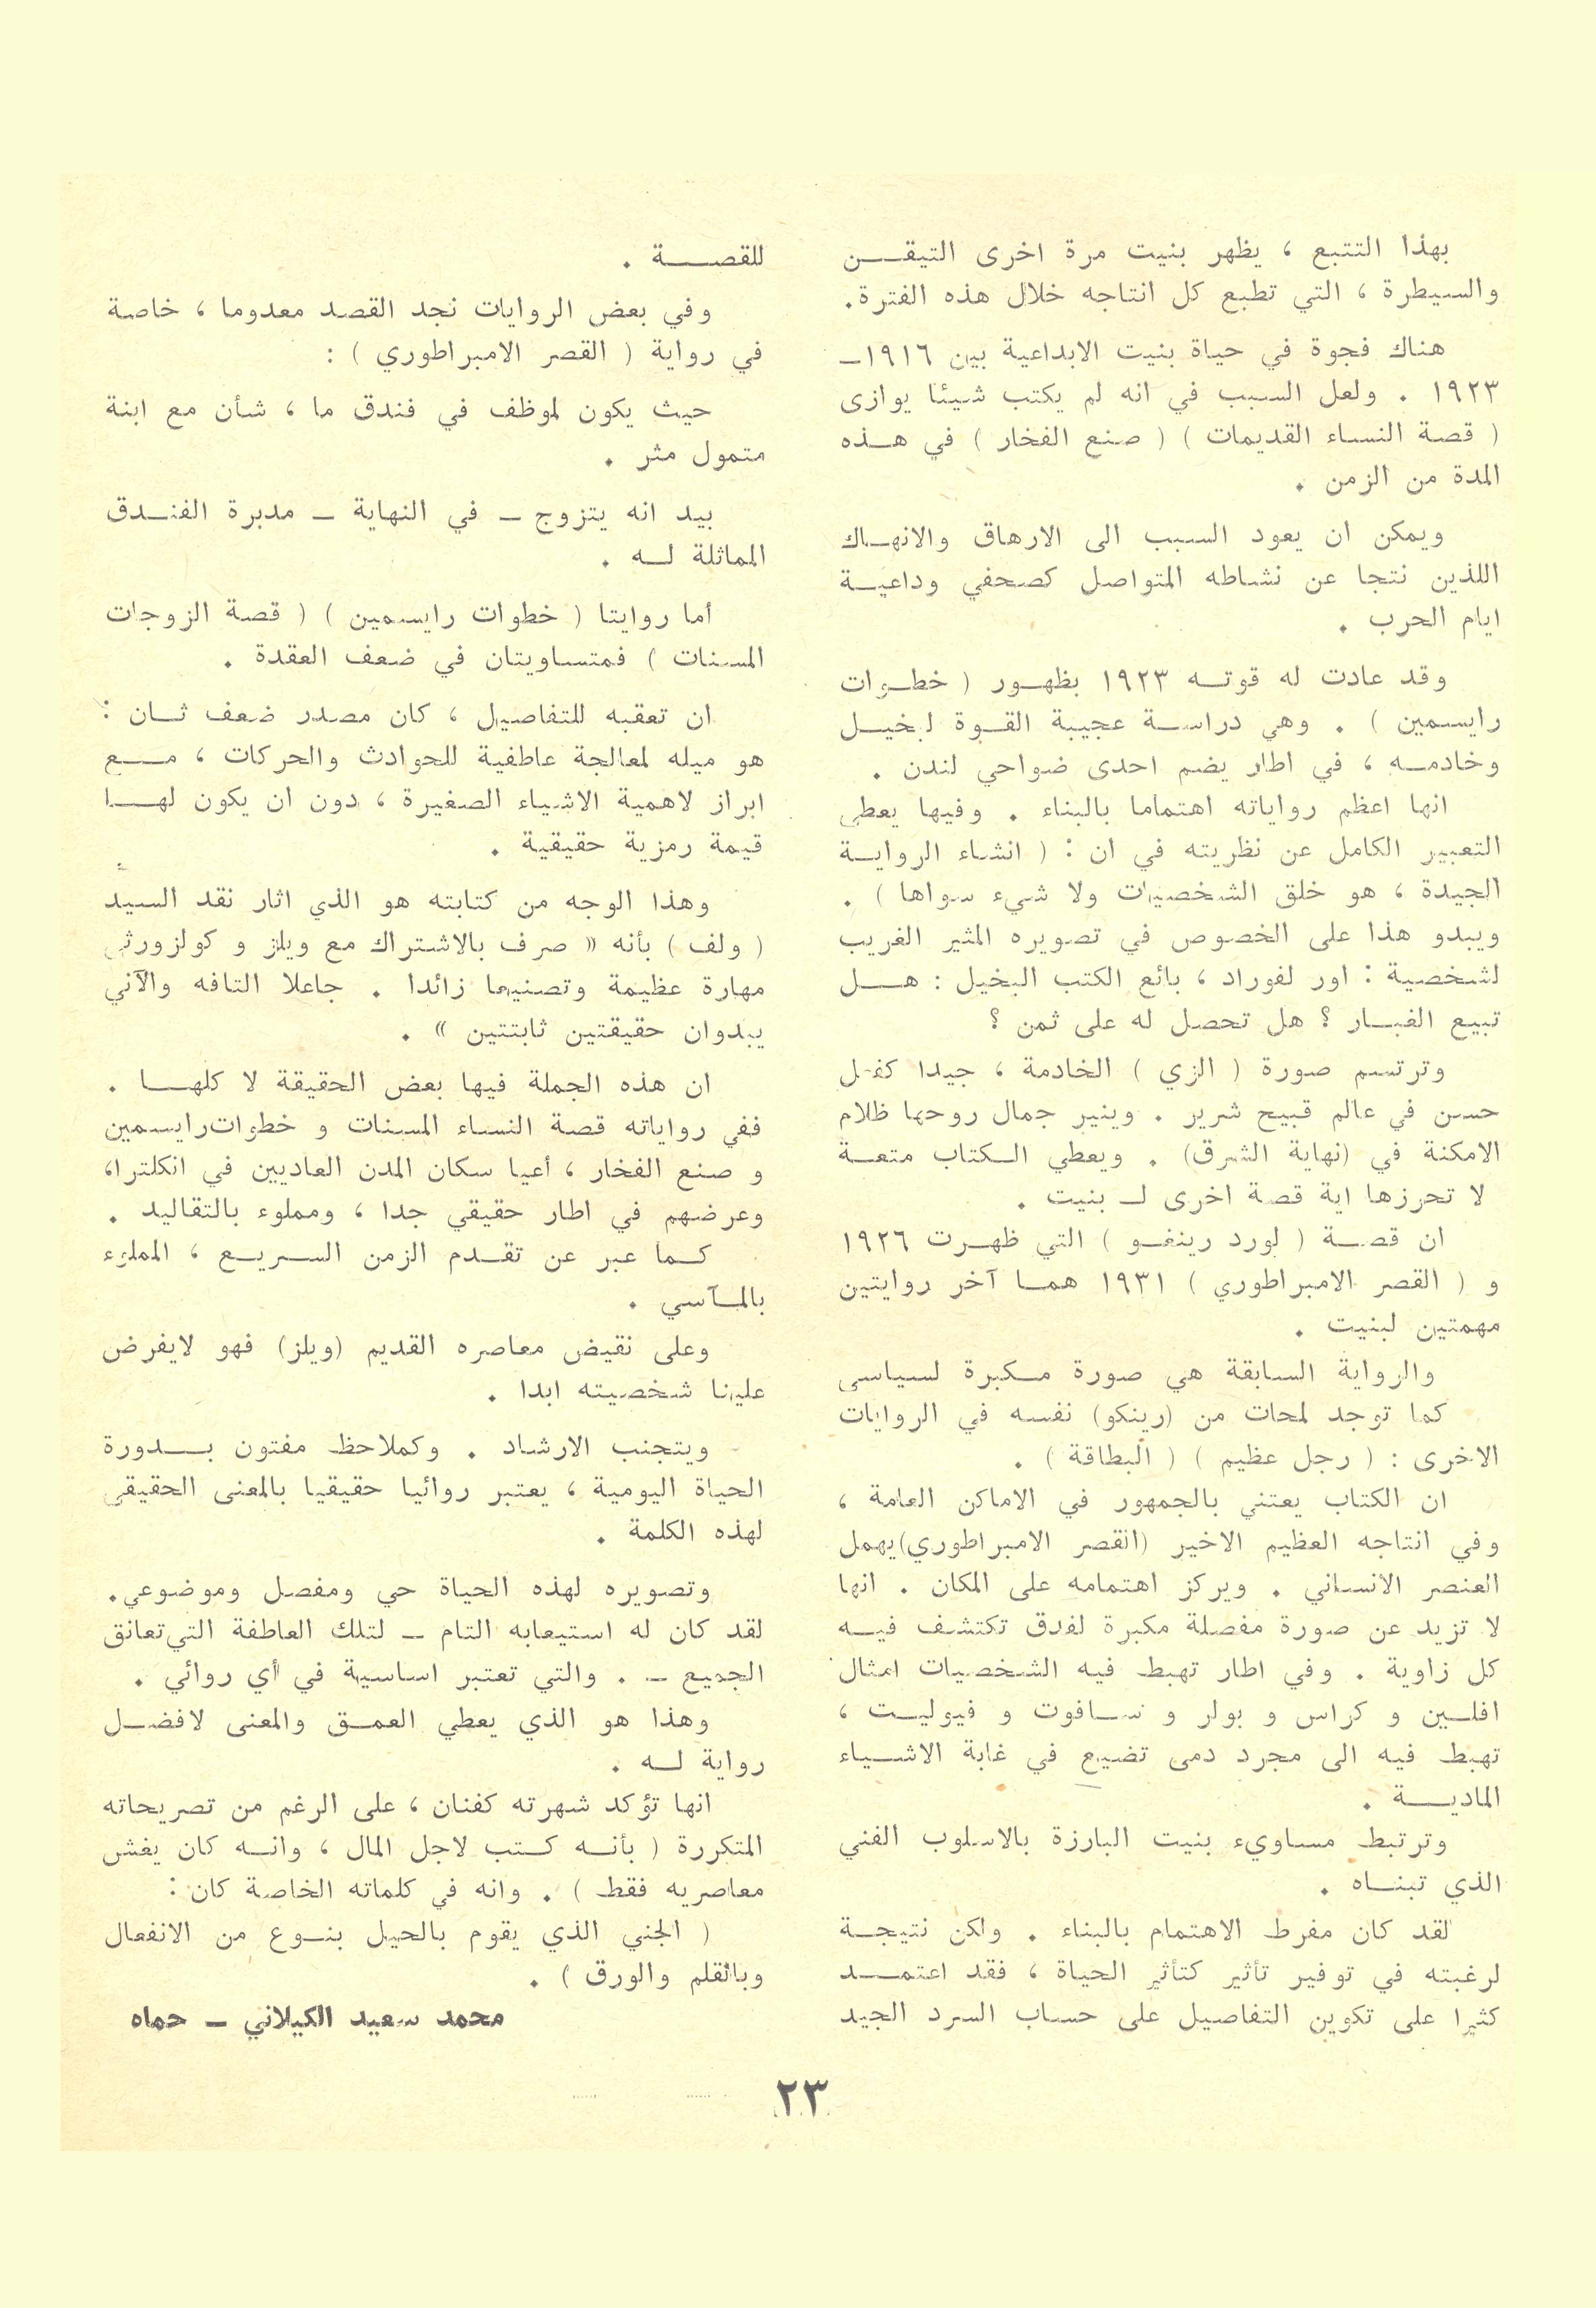 بهذا التتبع ، يظهر بنيت مرة اخرى التيقن
والسيطرة ، التي تطبع كل انتاجه خلال هذه الفترة.
هناك فجوة في حياة بنيت الابداعية بين ١٩١٦ــ
١٩٢٣ . ولعل السبب في انه لم يكتب شيئا يوازى
( قصة النساء القديمات ) ( صنع الفخار ) في هذه
المدة من الزمن .
ويمكن ان يعود السبب الى الارهاق والانهاك
اللذين نتجا عن نشاطه المتواصل كصحفي وداعية
ايام الحرب .
وقد عادت له قوته ١٩٢٣ بظهور ( خطوات
رايسمين ) . وهي دراسة عجيبة القوة لبخيل
وخادمه ، في اطار يضم احدى ضواحي لندن .
انها اعظم رواياته اهتماما بالبناء . وفيها يعطي
التعبير الكامل عن نظريته في ان : ( انشاء الرواية
الجيدة ، هو خلق الشخصيات ولا شيء سواها ) .
ويبدو هذا على الخصوص في تصويره المثير الغريب
لشخصية : اور لفوراد ، بائع الكتب البخيل : هل
تبيع الغبار ؟ هل تحصل له على ثمن ؟
وترتسم صورة ( الزي ) الخادمة ، جيدا كفعل
حسن في عالم قبيح شرير . وينير جمال روحها ظلام
الامكنة في (نهاية الشرق) . ويعطي الكتاب متعة
لا تحرزها اية قصة اخرى لـ بنيت .
ان قصة ( لورد رينغو ) التي ظهرت ١٩٢٦
و ( القصر الامبراطوري ) ١٩٣١ هما آخر روايتين
مهمتين لبنيت .
والرواية السابقة هي صورة مكبرة لسياسي
كما توجد لمحات من (رينكو) نفسه في الروايات
الاخرى : ( رجل عظيم ) ( البطاقة ) .
ان الكتاب يعتني بالجمهور في الاماكن العامة ،
وفي انتاجه العظيم الاخير (القصر الامبراطوري)يهمل
العنصر الانساني . ويركز اهتمامه على المكان . انها
لا تزيد عن صورة مفصلة مكبرة لفندق تكتشف فيه
كل زاوية . وفي اطار تهبط فيه الشخصيات امثال
افلين و كراس و بولر و سافوت و فيوليت ،
تهبط فيه الى مجرد دمى تضيع في غابة الاشياء
المادية .
وترتبط مساويء بنيت البارزة بالاسلوب الفني
الذي تبناه .
لقد كان مفرط الاهتمام بالبناء . ولكن نتيجة
لرغبته في توفير تأثير كتأثير الحياة ، فقد اعتمد
كثيرا على تكوين التفاصيل على حساب السرد الجيد
للقصة .
وفي بعض الروايات نجد القصد معدوما ، خاصة
في رواية ( القصر الامبراطوري ) :
حيث يكون لموظف في فندق ما ، شأن مع ابنة
متمول مثر .
بيد انه يتزوج ــ في النهاية ــ مدبرة الفندق
المماثلة له .
أما روايتا ( خطوات رايسمين ) ( قصة الزوجات
المسنات ) فمتساويتان في ضعف العقدة .
ان تعقبه للتفاصيل ، كان مصدر ضعف ثان :
هو ميله لمعالجة عاطفية للحوادث والحركات ، مع
ابراز لاهمية الاشياء الصغيرة ، دون ان يكون لها
قيمة رمزية حقيقية .
وهذا الوجه من كتابته هو الذي اثار نقد السيد
( ولف ) بأنه « صرف بالاشتراك مع ويلز و كولزورثي
مهارة عظيمة وتصنيعا زائدا . جاعلا التافه والآني
يبدوان حقيقتين ثابتتين » .
ان هذه الجملة فيها بعض الحقيقة لا كلها .
ففي رواياته قصة النساء المسنات و خطوات رايسمين
و صنع الفخار ، أعيا سكان المدن العاديين في انكلترا،
وعرضهم في اطار حقيقي جدا ، ومملوء بالتقاليد .
كما عبر عن تقدم الزمن السريع ، المملوء
بالمآسي .
وعلى نقيض معاصره القديم (ويلز) فهو لايفرض
علينا شخصيته ابدا .
ويتجنب الارشاد . وكملاحظ مفتون بدورة
الحياة اليومية ، يعتبر روائيا حقيقيا بالمعنى الحقيقي
لهذه الكلمة .
وتصويره لهذه الحياة حي ومفصل وموضوعي.
لقد كان له استيعابه التام ــ لتلك العاطفة التي تعانق
الجميع ــ . والتي تعتبر اساسية في أي روائي .
وهذا هو الذي يعطي العمق والمعنى لافضل
رواية له .
انها تؤكد شهرته كفنان ، على الرغم من تصريحاته
المتكررة ( بأنه كتب لاجل المال ، وانه كان يغش
معاصريه فقط ) . وانه في كلماته الخاصة كان :
( الجني الذي يقوم بالحيل بنوع من الانفعال
وبالقلم والورق ) .
محمد سعيد الكيلاني ــ حماه
٢٣